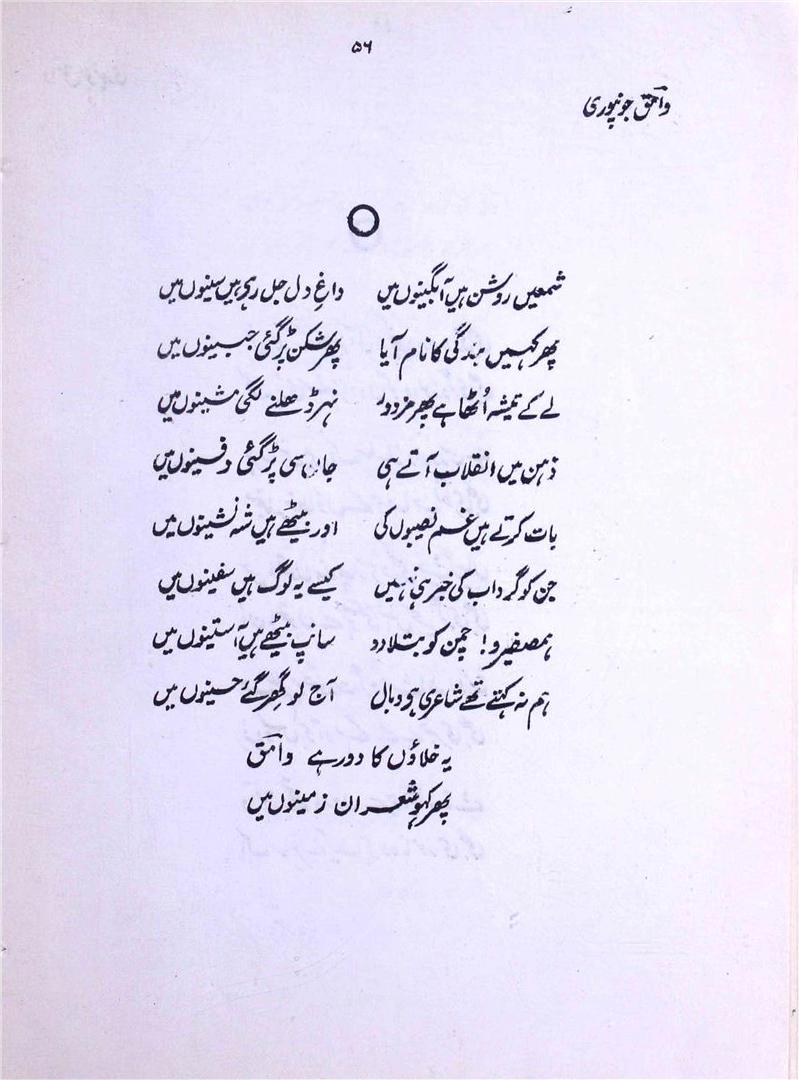 ۵۶
وامق جونپوری
شمعیں روشن ہیں آبگینوں میں داغِ دل جل رہے ہیں سینوں میں
پھر کہیں بندگی کا نام آیا پھر شکن پڑ گئی جبینوں میں
لے کے تیشہ اُٹھا ہے پھر مزدور نہر ڈھلنے لگی مشینوں میں
ذہن میں انقلاب آتے ہی جان سی پڑ گئی دفینوں میں
بات کرتے ہیں غم نصیبوں کی اور بیٹھے ہیں شہ نشینوں میں
جن کو گرداب کی خبر ہی نہیں کیسے یہ لوگ ہیں سفینوں میں
ہمصفیرو! چمن کو بتلا دو سانپ بیٹھے ہیں آستینوں میں
ہم نہ کہتے تھے شاعری ہے وبال آج لو گھر گئے حسینوں میں
یہ خلاؤں کا دور ہے وامق
پھر کہو شعر ان زمینوں میں